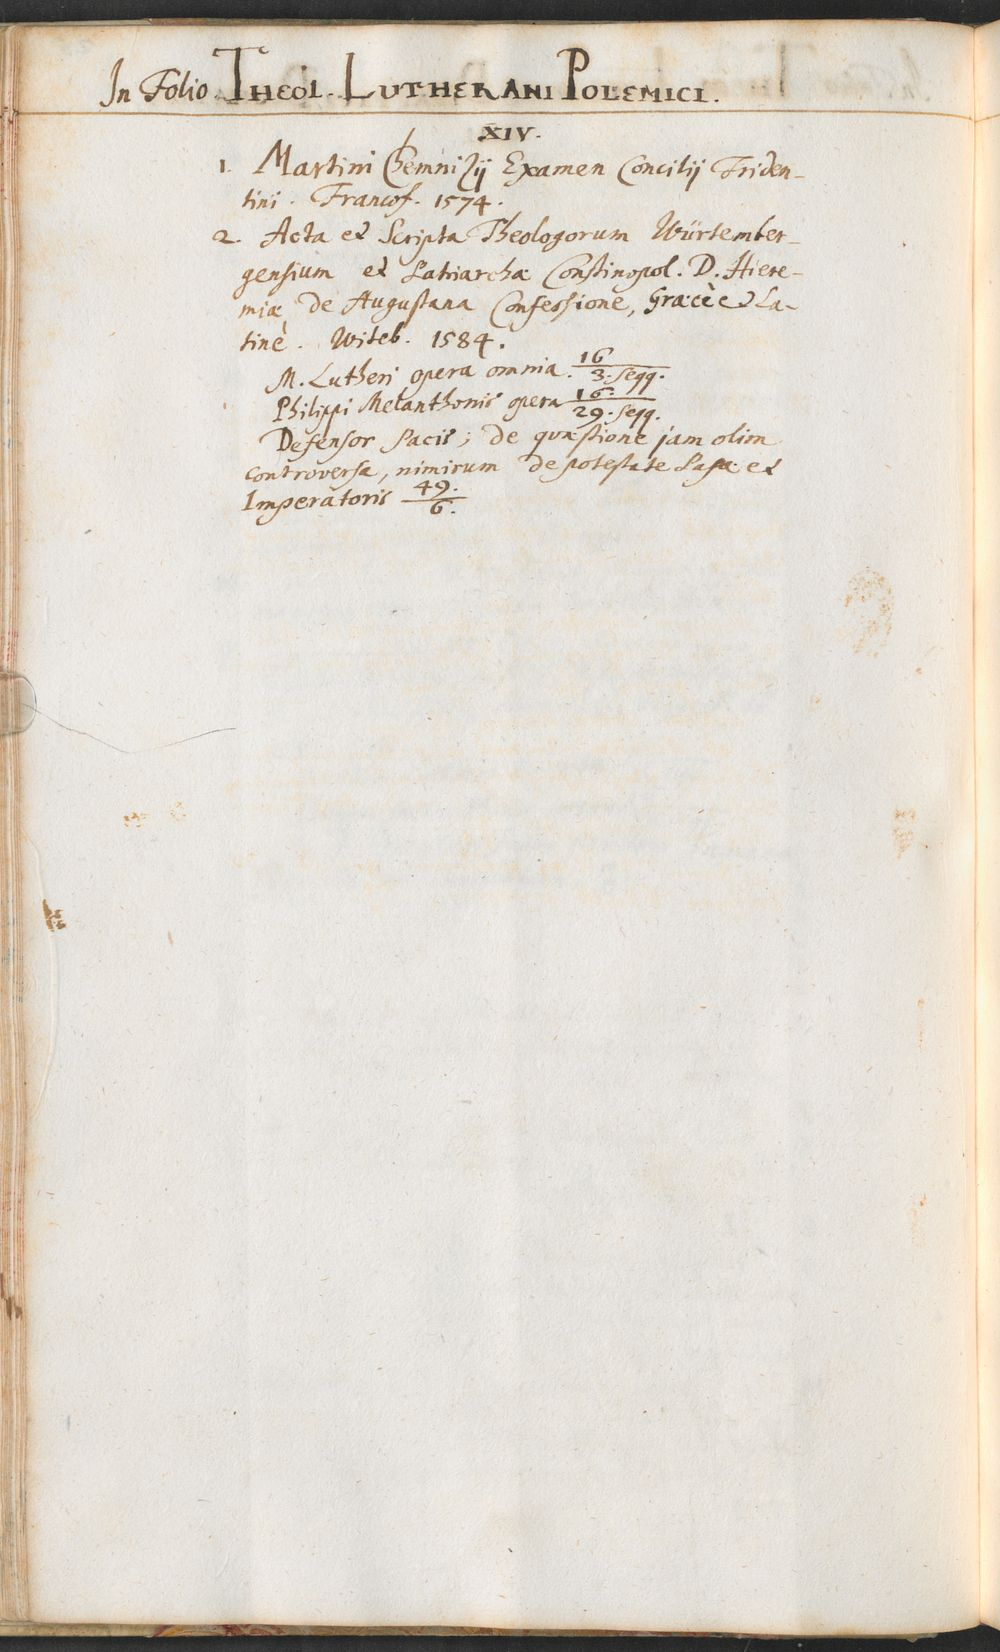 In Folio. THEOL. LUTHERANI POLEMICI.
XIV.
1. Martini Chemnizij Examen Concilij Triden-
tini. Francof. 1574.
2. Acta et Scripta Theologorum Würtember-
gensium et Patriarchæ Constinopol. D. Hiere-
miæ de Augustana Confessione, Græcè et La-
tinè. Witeb. 1584.
M. Lutheri opera omnia. 16/3. seqq.
Philippi Melanthonis opera 16./29. seqq.
Defensor Pacis; de quæstione jam olim
controversa, nimirum de potestate Papæ et
Imperatoris 49./6.